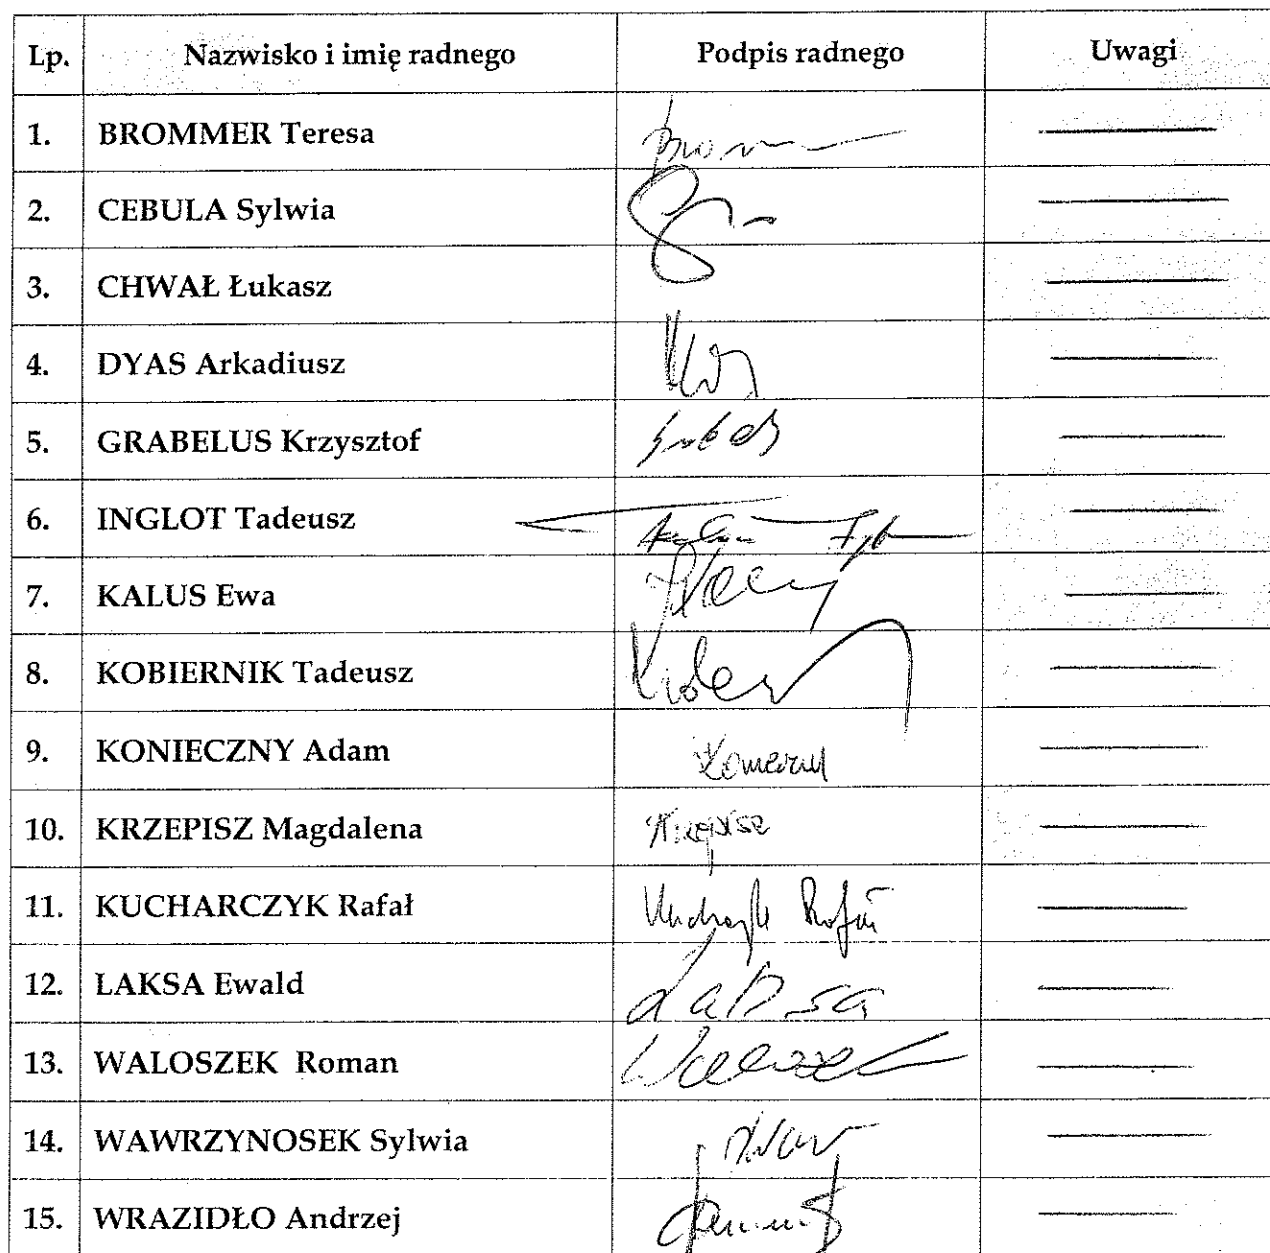 Lp. Nazwisko i imię radnego Podpis radnego Uwagi
1. BROMMER Teresa
2. CEBULA Sylwia
3. CHWAŁ Łukasz
4. DYAS Arkadiusz
5. GRABELUS Krzysztof
6. INGLOT Tadeusz
7. KALUS Ewa
8. KOBIERNIK Tadeusz
9. KONIECZNY Adam
10. KRZEPISZ Magdalena
11. KUCHARCZYK Rafał
12. LAKSA Ewald Laksa
13. WALOSZEK Roman
14. WAWRZYNOSEK Sylwia
15. WRAZIDŁO Andrzej